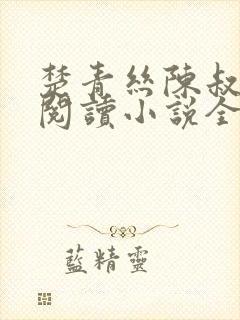 楚青絲陳叔
閱讀小說全
藍精靈